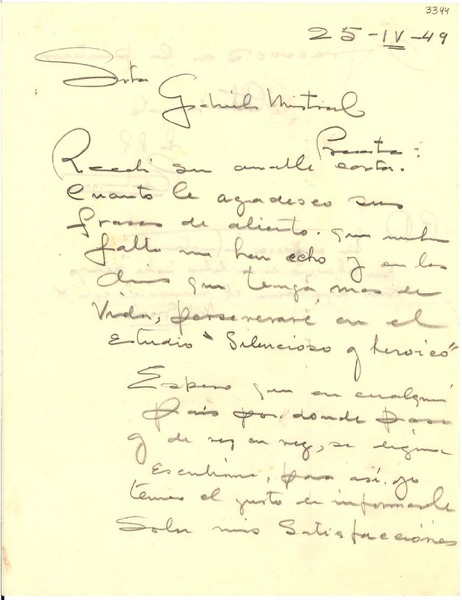 3344
25-IV-49
Srta Gabriela Mistral
Presente:
Recibi su amable carta.
Cuanto le agadesco sus
frases de aliento. que mucha
falta me han echo y en los
dias que tenga, mas de
Vida, perseverare en el
Estudio "Silencioso y heroico"
Espero que en cualquier
pais por donde pase
y de vez en vez, se digne
Escribirme, para asi yo
tener el gusto de informarle
Sobre mis Satisfacciones